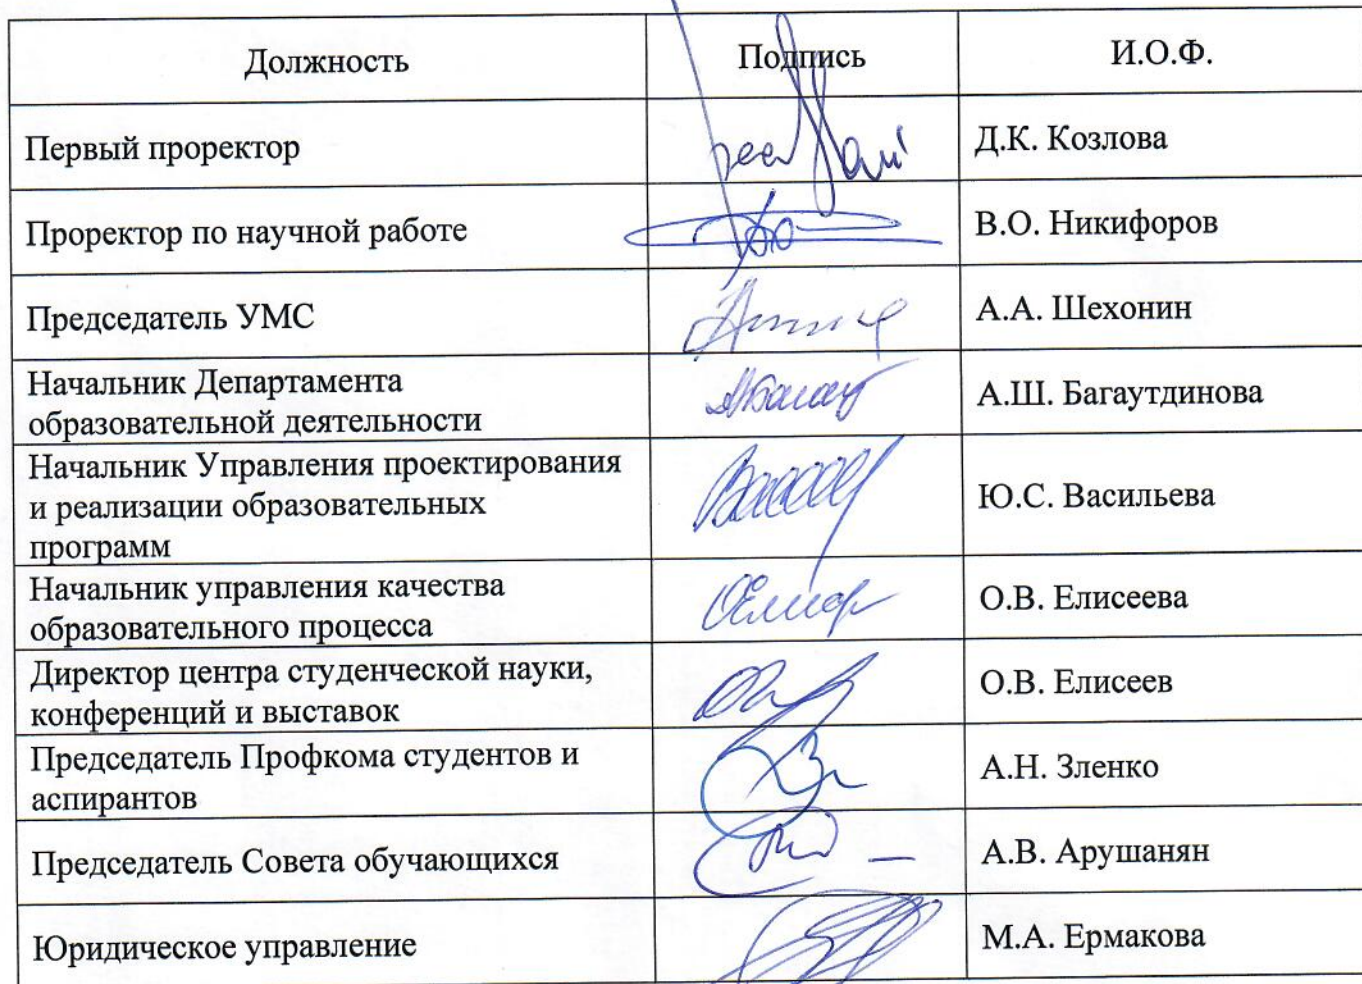 Должность Подпись И.О.Ф.
Первый проректор Д.К. Козлова
Проректор по научной работе В.О. Никифоров
Председатель УМС А.А. Шехонин
Начальник Департамента
образовательной деятельности А.Ш. Багаутдинова
Начальник Управления проектирования
и реализации образовательных Ю.С. Васильева
программ
Начальник управления качества
образовательного процесса О.В. Елисеева
Директор центра студенческой науки,
конференций и выставок О.В. Елисеев
Председатель Профкома студентов и
аспирантов А.Н. Зленко
Председатель Совета обучающихся А.В. Арушанян
Юридическое управление М.А. Ермакова